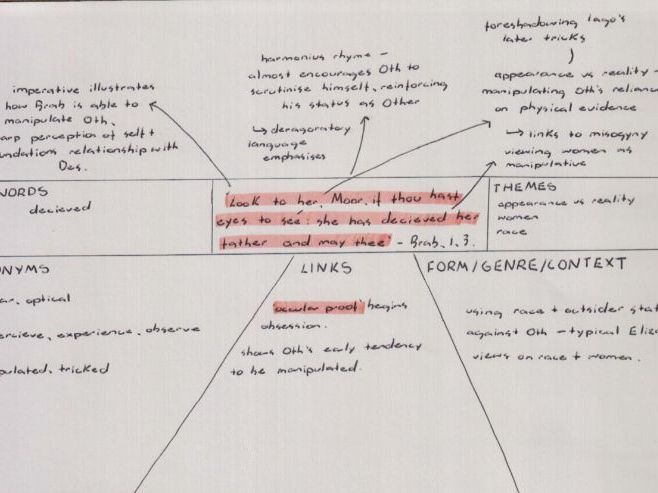 imperative illustrates
how Brab is able to
manipulate Oth.
arp perception of self +
undations relationship with
Des.
harmonius rhyme -
almost encourages Oth to
scrutinise himself, reinforcing
his status as Other
↳ deragoratory
language
emphasises
foreshadowing Iago's
later tricks
appearance vs reality -
manipulating Oth's relianc
on physical evidence
↳ links to misogyny
viewing women as
manipulative
WORDS
decieved
'Look to her, Moor, if thou hast
eyes to see: she has decieved her
father and may thee' - Brab, 1.3.
THEMES
appearance vs reality
women
race
NYMS
ar, optical
ercieve, experience, observe
pulated, tricked
LINKS
'occular proof' begins
obsession.
shows Oth's early tendency
to be manipulated.
FORM/GENRE/CONTEXT
using race + outsider stat
against Oth - typical Eliza
views on race + women.